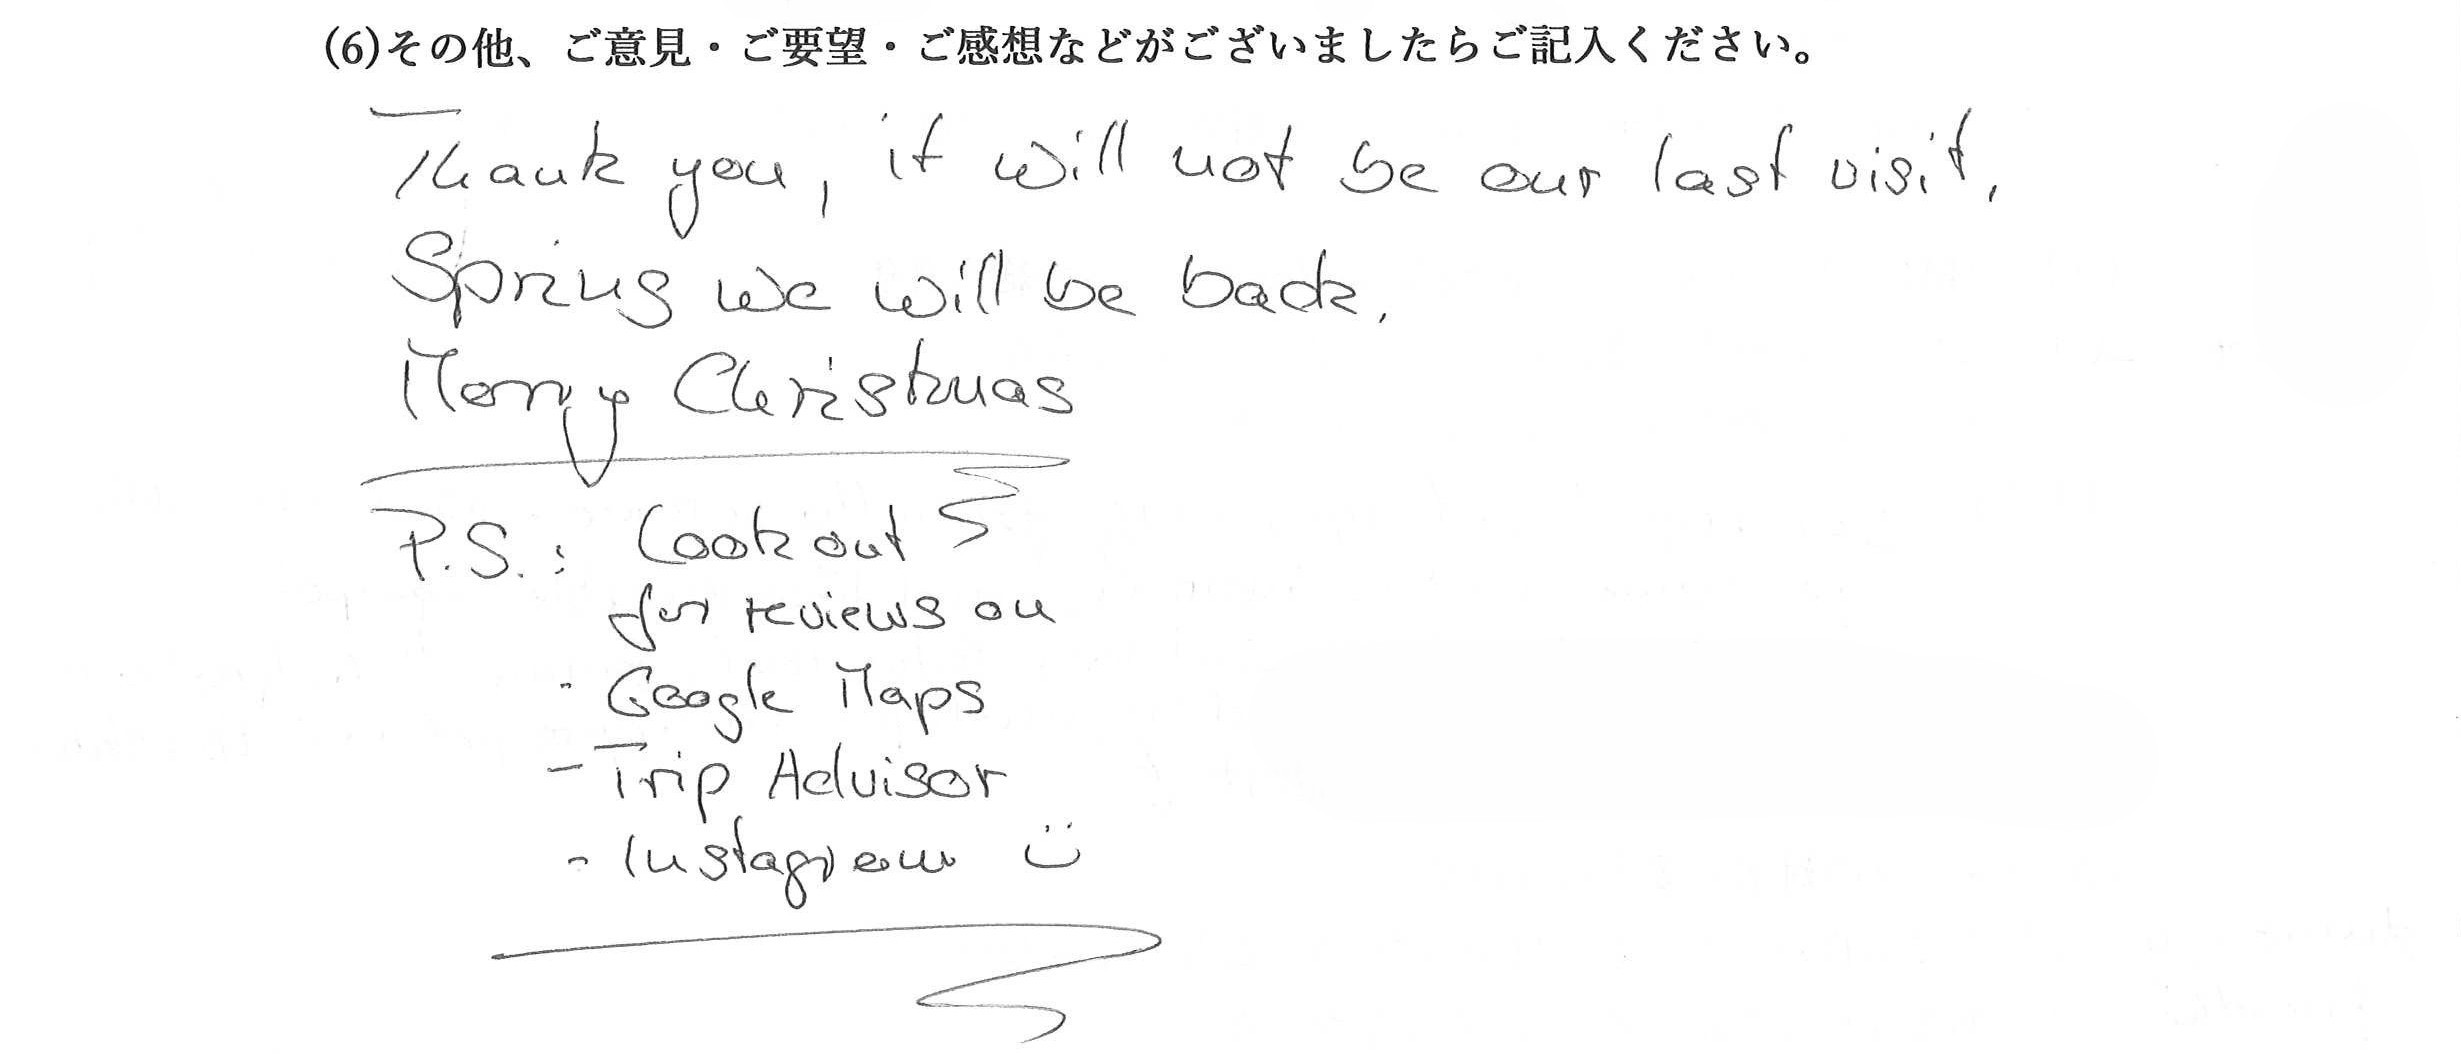 (6)その他、ご意見・ご要望・ご感想などがございましたらご記入ください。
Thank you, it will not be our last visit,
Spring we will be back.
Merry Christmas
P.S.: Look out
for reviews on
- Google Maps
- Trip Advisor
- Instagram ü